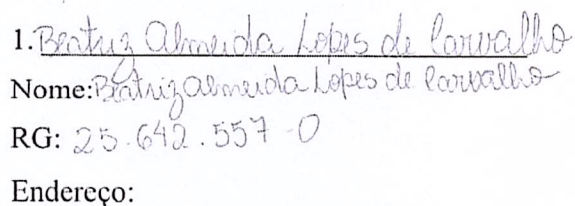 1. Beatriz Almeida Lopes de Carvalho
Nome: Beatriz Almeida Lopes de Carvalho
RG: 25.642.557-0
Endereço: